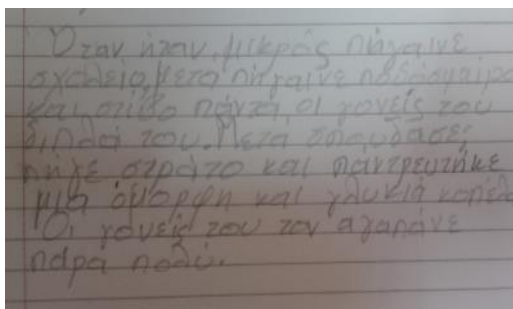 Όταν ήταν μικρός πήγαινε
σχολείο, μετά πήγαινε ποδόσφαιρο
και στίβο πάντα οι γονείς του
δίπλα του. Μετά σπούδασε
πήγε στράτο και παντρευτήκε
μία όμορφη και γλυκιά κοπέλα
Οι γονείς του τον αγαπάνε
πάρα πολύ.